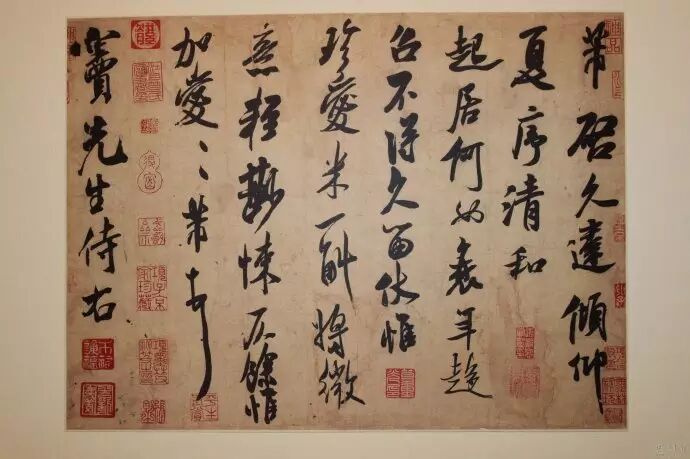 芾啟久違傾仰
夏序清和
起居何如衰年趍
召不得久留伏惟
珍愛米一斛將微
意輕尠悚仄餘惟
加愛〻芾頓首
竇先生侍右